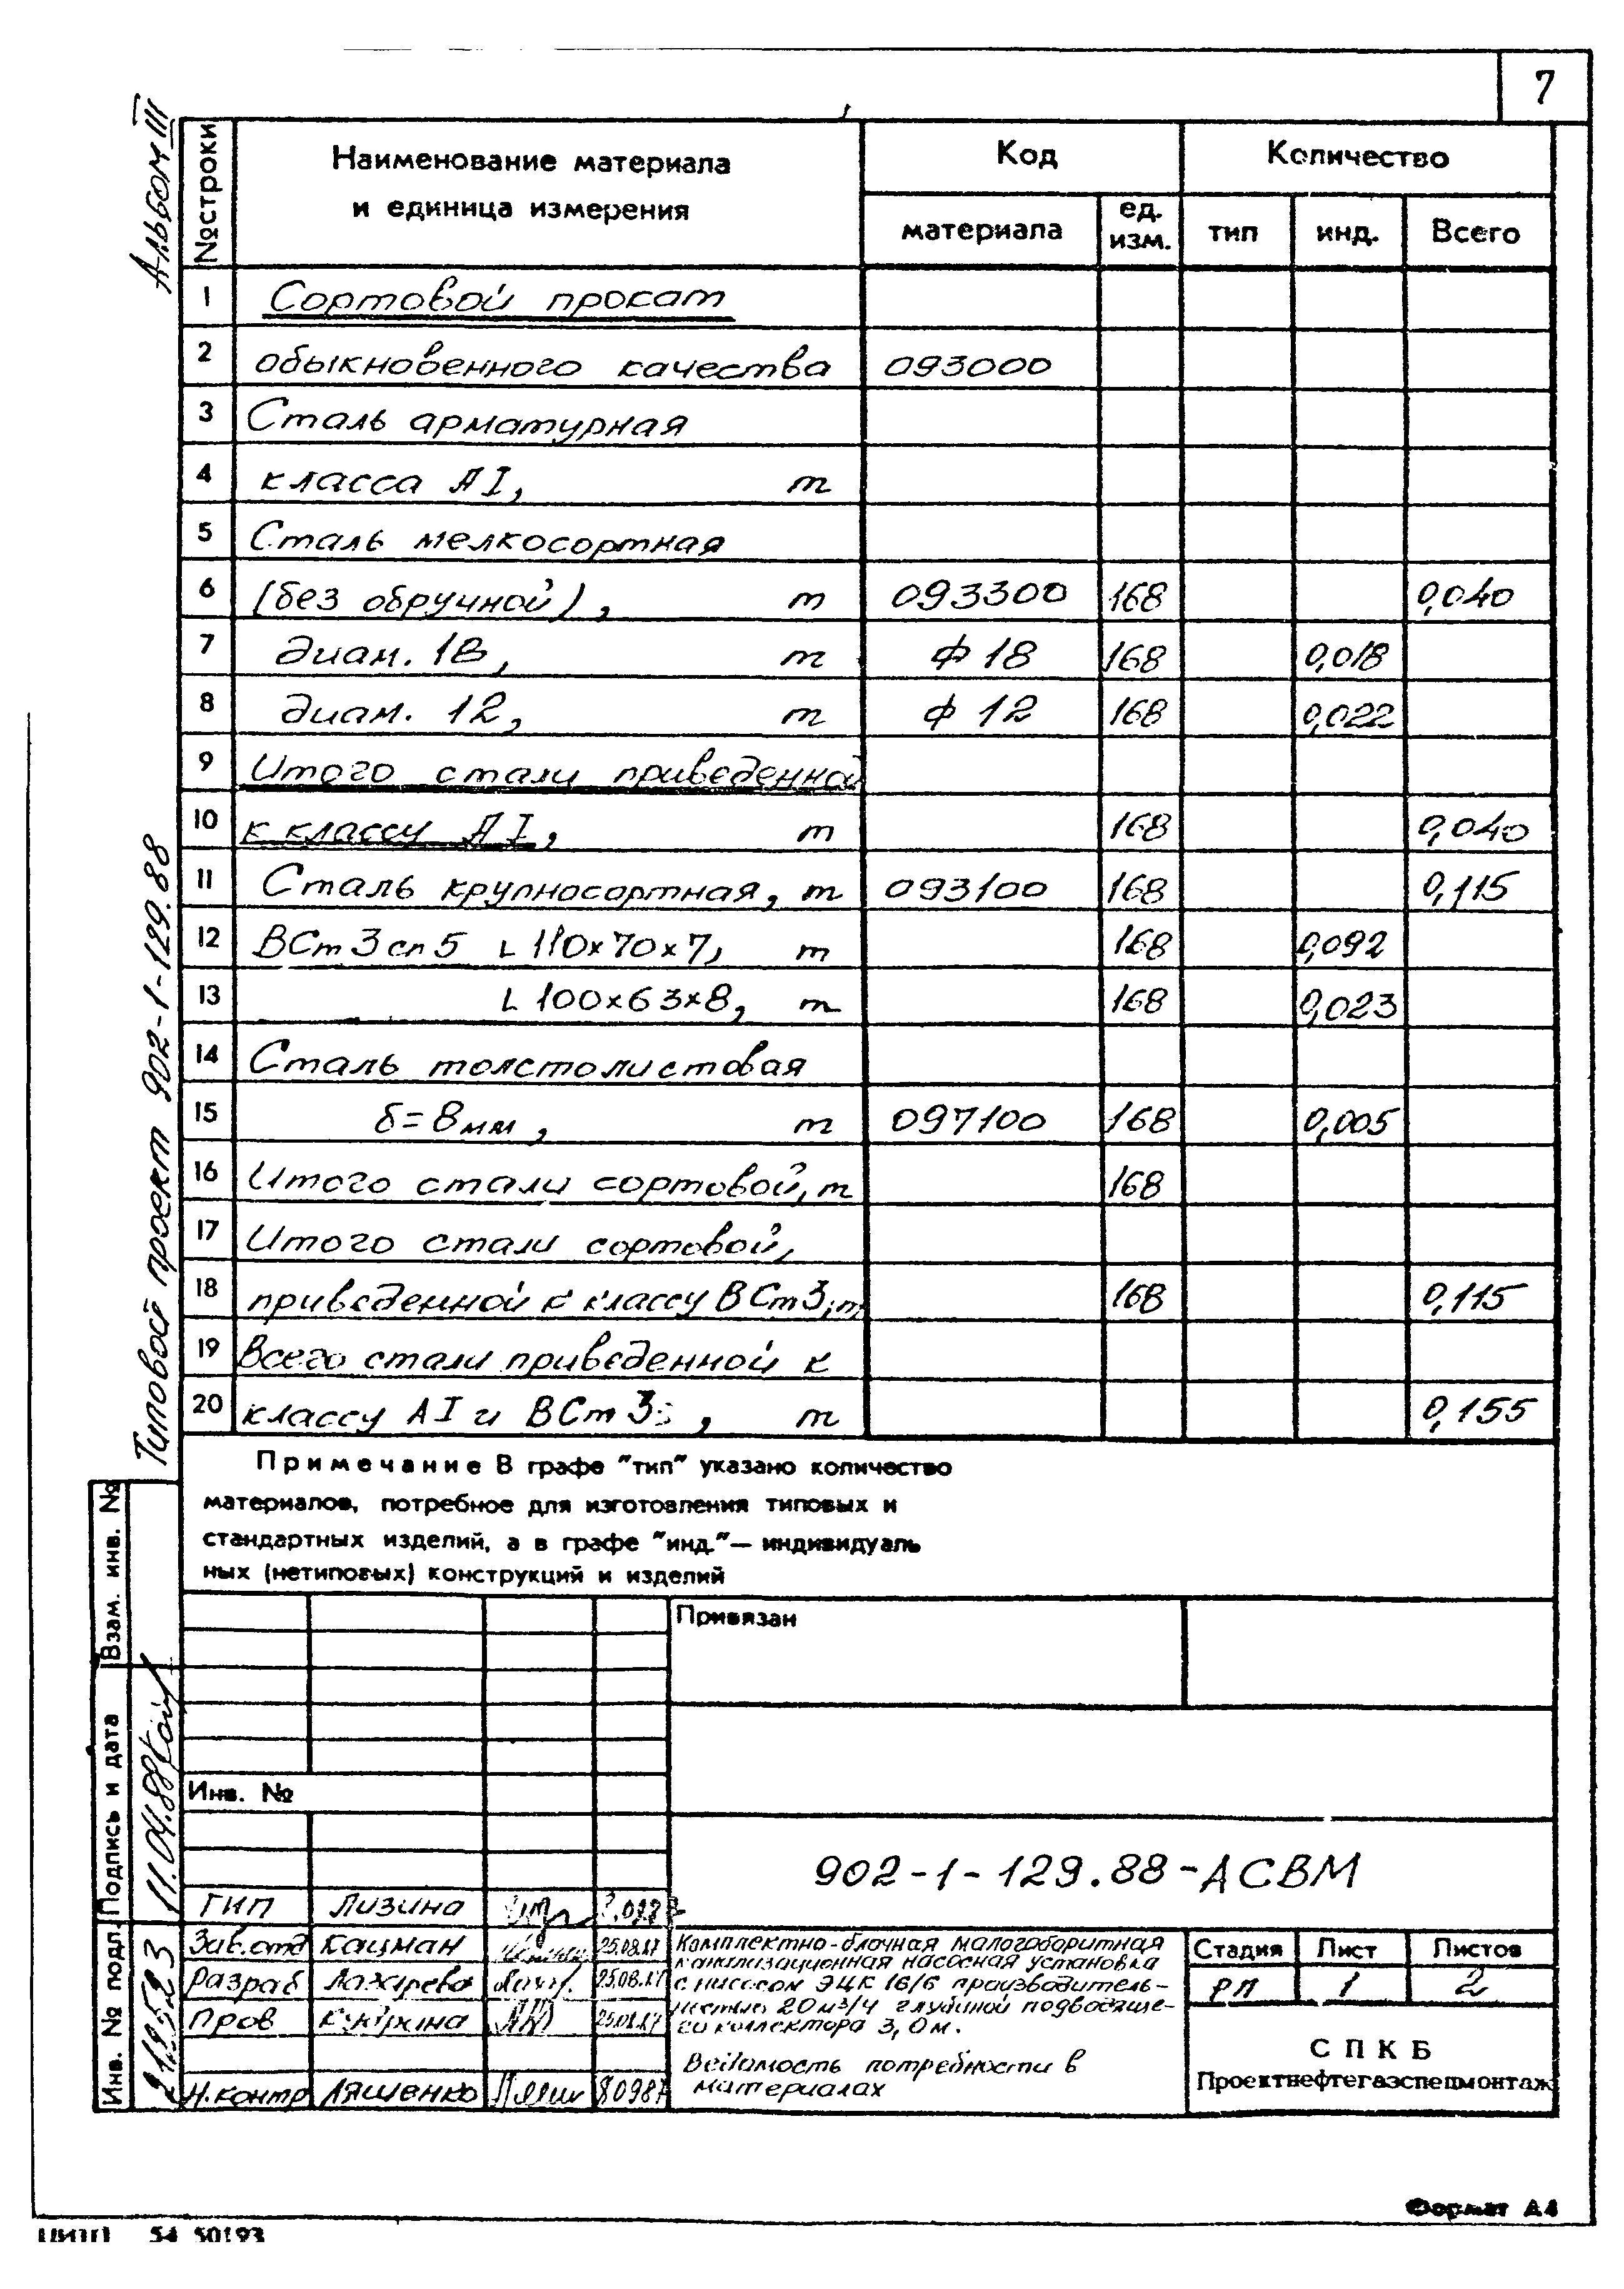 7
Альбом III
Типовой проект 902-1-129.88
№ строки
Наименование материала
и единица измерения
Код
Количество
материала
ед.
изм.
тип
инд.
Всего
1 Сортовой прокат
2 обыкновенного качества 093000
3 Сталь арматурная
4 класса АI, т
5 Сталь мелкосортная
6 (без обручной), т 093300 168 0,040
7 диам. 18, т ф 18 168 0,018
8 диам. 12, т ф 12 168 0,022
9 Итого стали приведенной
10 к классу АI, т 168 0,040
11 Сталь крупносортная, т 093100 168 0,115
12 ВСт3сп5 L 110х70х7, т 168 0,092
13 L 100х63х8, т 168 0,023
14 Сталь толстолистовая
15 δ=8мм, т 097100 168 0,005
16 Итого стали сортовой, т 168
17 Итого стали сортовой,
18 приведенной к классу ВСт3, т 168 0,115
19 Всего стали приведенной к
20 классу АI и ВСт3, т 0,155
Примечание В графе "тип" указано количество
материалов, потребное для изготовления типовых и
стандартных изделий, а в графе "инд." — индивидуаль
ных (нетиповых) конструкций и изделий
Взам. инв. №
Подпись и дата
11.04.88
Инв. № подл.
Привязан
Инв. №
902-1-129.88-АСВМ
ГИП Лизина
Зав.отд Кацман 25.08.87
Разраб Лазарева 25.08.87
Пров
Н.контр Ляшенко
Комплектно-блочная малогабаритная
канализационная насосная установка
с насосом ЭЦК 16/6 производитель-
ностью 20м3/ч глубиной подводяще-
го коллектора 3,0м.
Ведомость потребности в
материалах
Стадия Лист Листов
РП 1 2
СПКБ
Проектнефтегазспецмонтаж
Формат А4